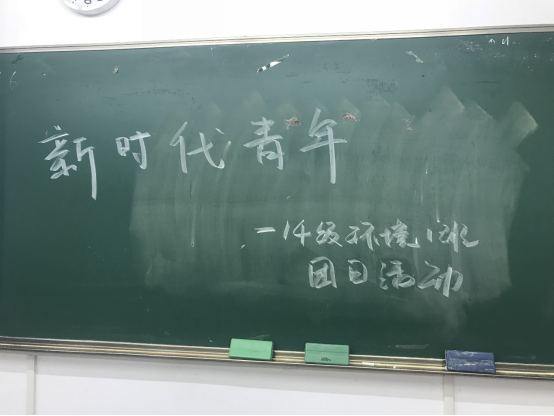 新时代青年
-14级环境1班
团日活动